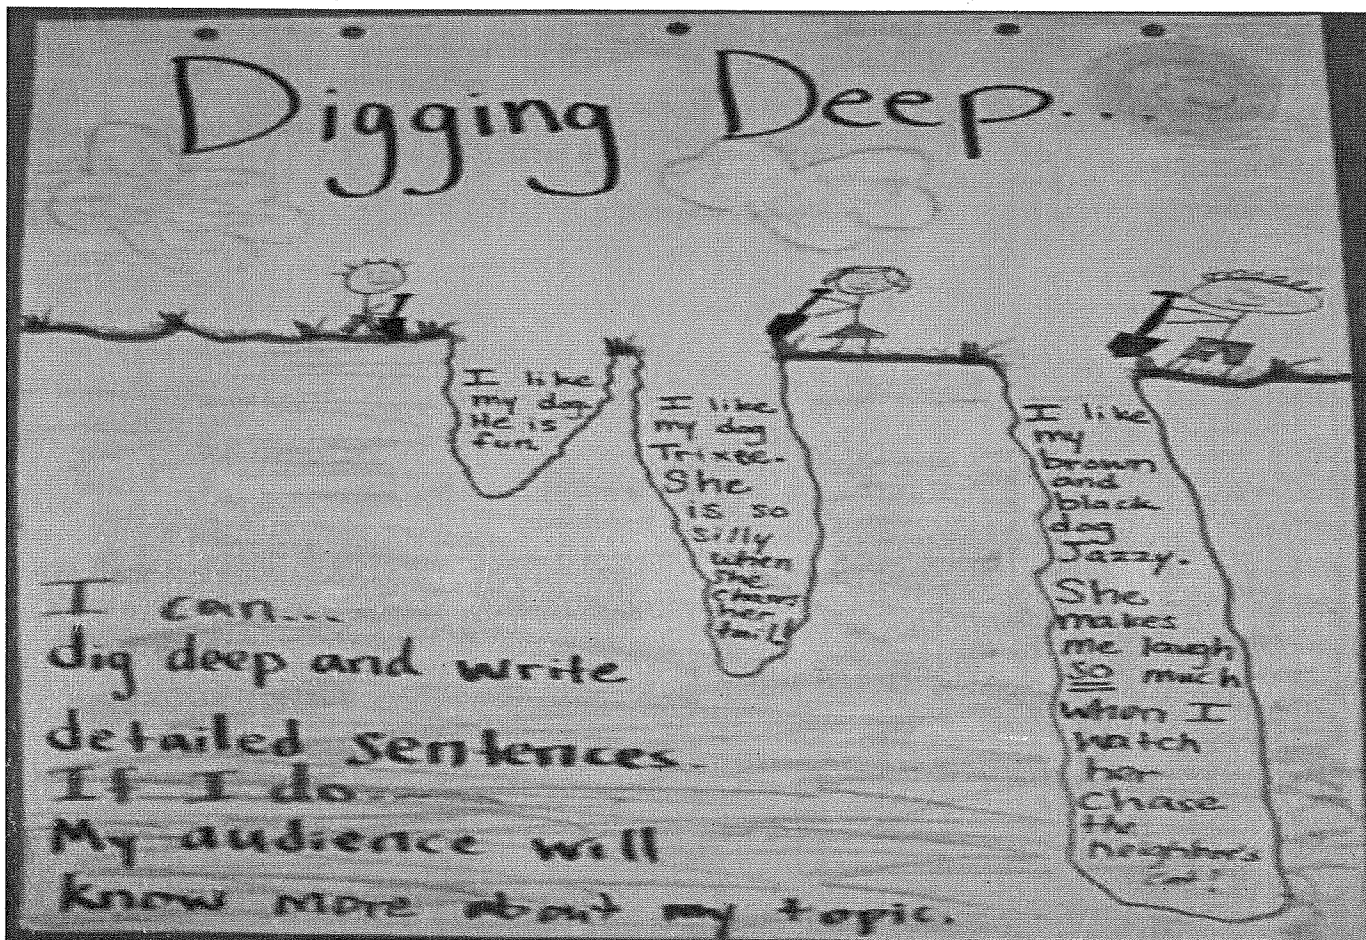 Digging Deep...
I like
my dog.
He is
fun
I like
my dog
Trixee.
She
is so
silly
when
she
chases
her
tail!
I like
my
brown
and
black
dog
Jazzy.
She
makes
me laugh
so much
when I
watch
her
chase
the
neighbors
cat!
I can...
dig deep and write
detailed sentences.
If I do...
My audience will
know more about my topic.